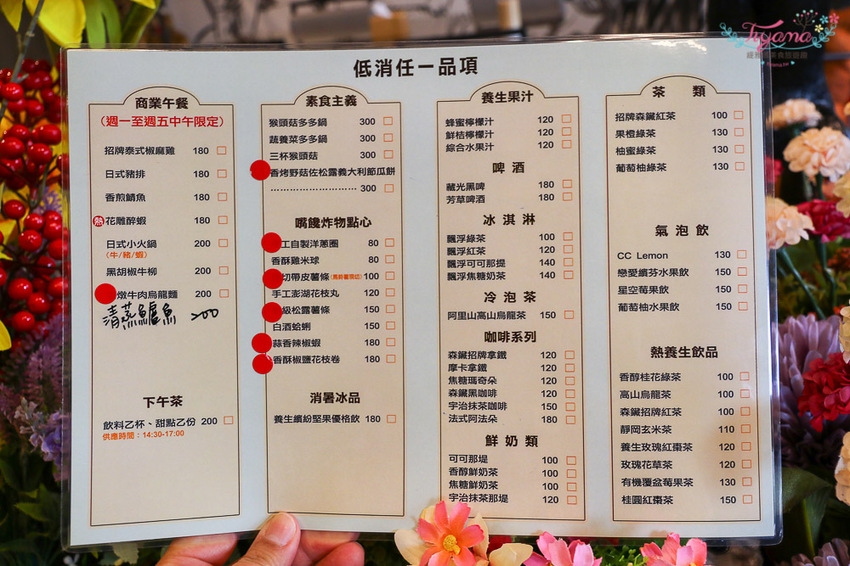 Tiyama
低消任一品項
商業午餐
(週一至週五中午限定)
招牌泰式椒麻雞 180
日式豬排 180
香煎鯖魚 180
熱 花雕醉蝦 180
日式小火鍋 200
(牛/豬/蝦)
黑胡椒牛柳 200
燉牛肉烏龍麵 200
清蒸鱸魚 200
下午茶
飲料乙杯、甜點乙份 200
供應時間:14:30-17:00
素食主義
猴頭菇多多鍋 300
蔬養菜多多鍋 300
三杯猴頭菇 300
香烤野菇佐松露義大利節瓜餅
........................ 300
嘴饞炸物點心
工自製洋蔥圈 80
香酥雞米球 80
切帶皮薯條 100
手工澎湖花枝丸 120
級松露薯條 150
白酒蛤蜊 150
蒜香辣椒蝦 180
香酥椒鹽花枝卷 180
消暑冰品
養生繽紛堅果優格飲 180
養生果汁
蜂蜜檸檬汁 120
鮮桔檸檬汁 120
綜合水果汁 120
啤酒
藏光黑啤 180
芳草啤酒 180
冰淇淋
飄浮綠茶 100
飄浮紅茶 120
飄浮可可那堤 140
飄浮焦糖奶茶 140
冷泡茶
阿里山高山烏龍茶 150
咖啡系列
森鐵招牌拿鐵 120
摩卡拿鐵 120
焦糖瑪奇朵 120
森鐵黑咖啡 120
宇治抹茶咖啡 150
法式阿法朵 180
鮮奶類
可可那堤 100
香醇鮮奶茶 100
焦糖鮮奶茶 100
宇治抹茶那堤 120
茶類
招牌森鐵紅茶 100
果橙綠茶 130
柚蜜綠茶 130
葡萄柚綠茶 130
氣泡飲
CC Lemon 130
戀愛繽芬水果飲 150
星空莓果飲 150
葡萄柚水果飲 150
熱養生飲品
香醇桂花綠茶 100
高山烏龍茶 100
森鐵招牌紅茶 100
靜岡玄米茶 110
養生玫瑰紅棗茶 120
玫瑰花草茶 120
有機覆盆莓果茶 130
桂圓紅棗茶 150